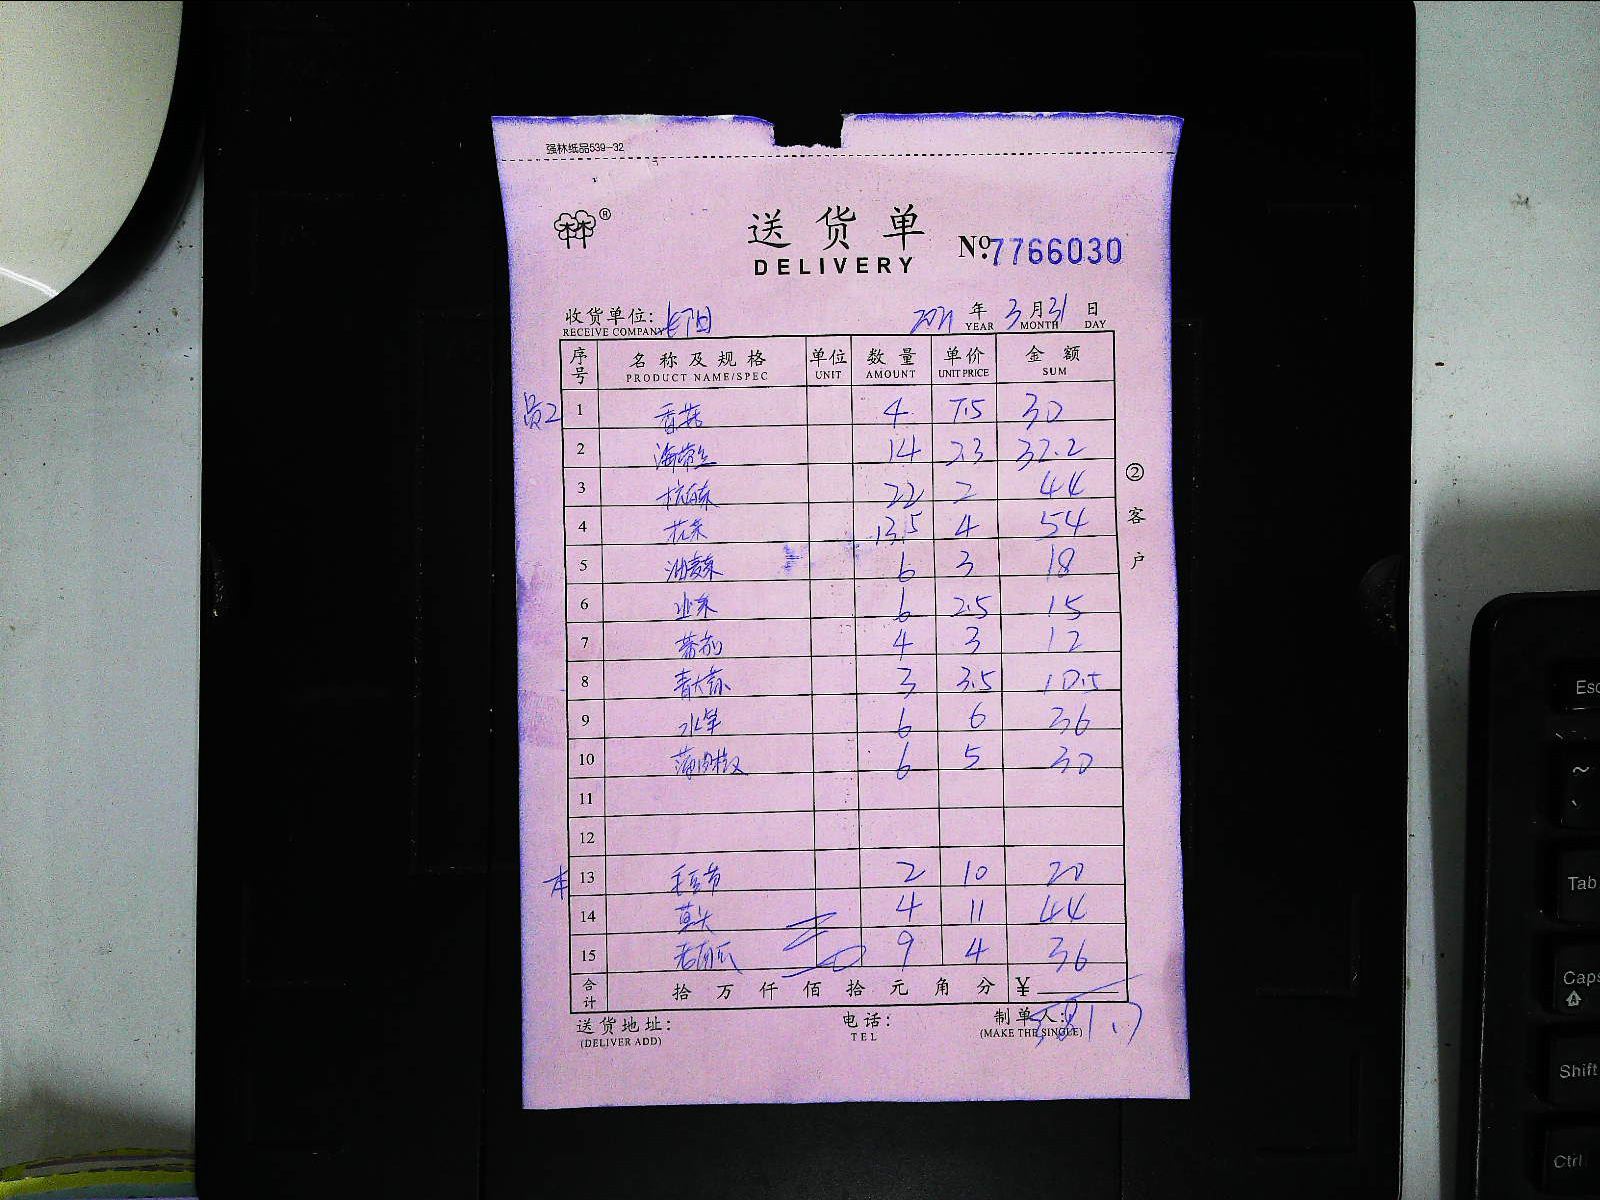 强林纸品539-32
送货单
DELIVERY
№ 7766030
收货单位:
RECEIVE COMPANY
2021 年 3 月 31 日
YEAR MONTH DAY
序号 名称及规格 单位 数量 单价 金额
PRODUCT NAME/SPEC UNIT AMOUNT UNIT PRICE SUM
员工 1 香菇 4 7.5 30
2 海带丝 14 2.3 32.2
3 22 2 44
4 花菜 13.5 4 54
5 油麦菜 6 3 18
6 6 2.5 15
7 番茄 4 3 12
8 青大椒 3 3.5 10.5
9 水笋 6 6 36
10 薄肉椒 6 5 30
11
12
13 2 10 20
14 4 11 44
15 老南瓜 9 4 36
合计 拾 万 仟 佰 拾 元 角 分 ¥
381.7
送货地址:
(DELIVER ADD)
电话:
TEL
制单人:
(MAKE THE SINGLE)
②客户
Esc
~
Tab
Caps
Shift
Ctrl